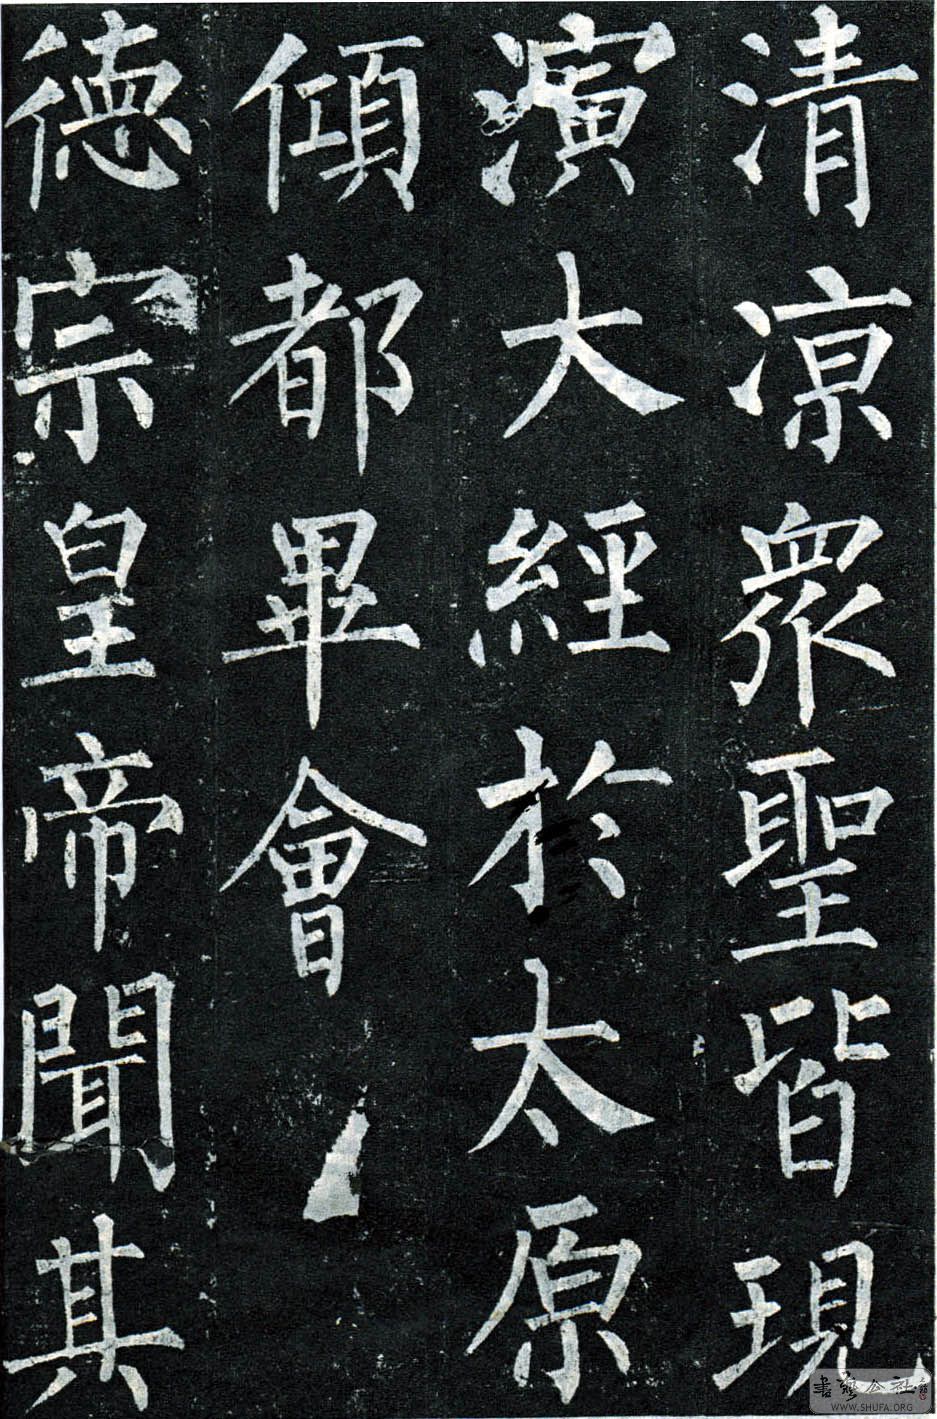 清涼衆聖皆現
演大經於太原
傾都畢會
德宗皇帝聞其
書藝公社
WWW.SHUFA.ORG